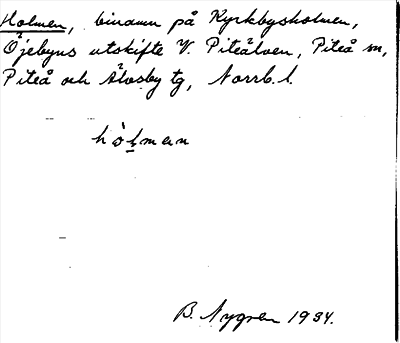 Holmen, binamn på Kyrkbyholmen,
Öjebyns utskifte V. Piteälven, Piteå m,
Piteå och Älvsby tg, Norrb. l.
hòḷman
B. Nygren 1934.